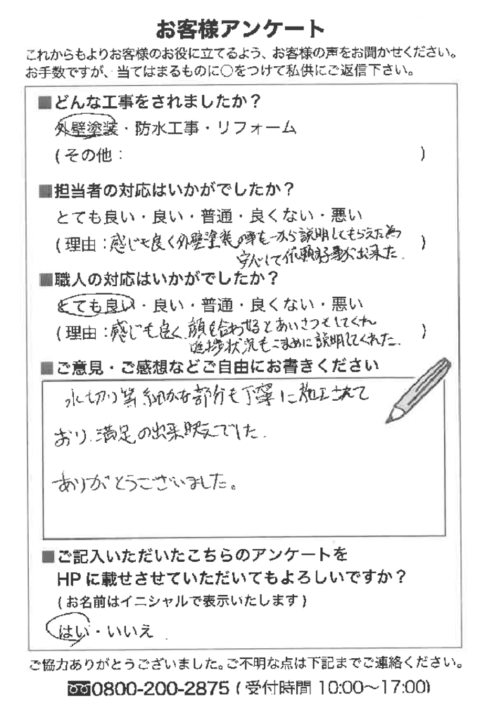 お客様アンケート
これからもよりお客様のお役に立てるよう、お客様の声をお聞かせください。
お手数ですが、当てはまるものに〇をつけて私供にご返信下さい。
■どんな工事をされましたか？
外壁塗装・防水工事・リフォーム
(その他： )
■担当者の対応はいかがでしたか？
とても良い・良い・普通・良くない・悪い
(理由：感じも良く外壁塗装の事も一から説明してもらえた為 )
安心して依頼する事が出来た.
■職人の対応はいかがでしたか？
とても良い・良い・普通・良くない・悪い
(理由：感じも良く、顔を合わせるとあいさつをしてくれ )
進捗状況もこまめに説明してくれた.
■ご意見・ご感想などご自由にお書きください
水切り等細かな部分も丁寧に施工されて
おり、満足の出来映えでした.
ありがとうございました。
■ご記入いただいたこちらのアンケートを
HPに載せさせていただいてもよろしいですか？
(お名前はイニシャルで表示いたします)
はい・いいえ
ご協力ありがとうございました。ご不明な点は下記までご連絡ください。
0800-200-2875 (受付時間 10:00〜17:00)